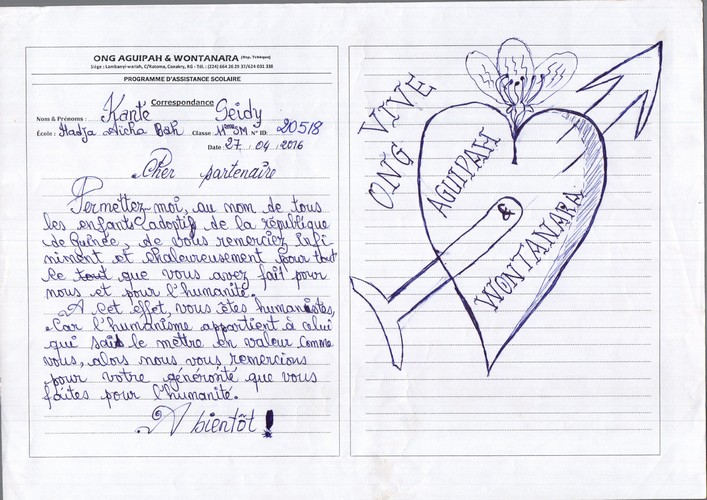 ONG AGUIPAH & WONTANARA (Rep. Tchèque)
Siège : Lambanyi-wariah, C/Ratoma, Conakry, RG - Tél. : (224) 664 26 29 37/624 031 338
PROGRAMME D'ASSISTANCE SCOLAIRE
Correspondance
Nom & Prénoms : Kante Seidy
École : Hadja Aicha Bah Classe : 11ème SM N° ID: 20518
Date : 27. 04. 2016
Cher partenaire
Permettez moi, au nom de tous
les enfants adoptifs de la république
de Guinée, de vous remercier infi
niment et chaleureusement pour tout
ce tout que vous avez fait pour
nous et pour l'humanité.
A cet effet, vous êtes humanistes,
Car l'humanisme appartient à celui
qui sait le mettre en valeur Comme
vous, alors nous vous remercions
pour votre générosité que vous
faites pour l'humanité.
A bientôt !
VIVE
ONG
AGUIPAH
&
WONTANARA